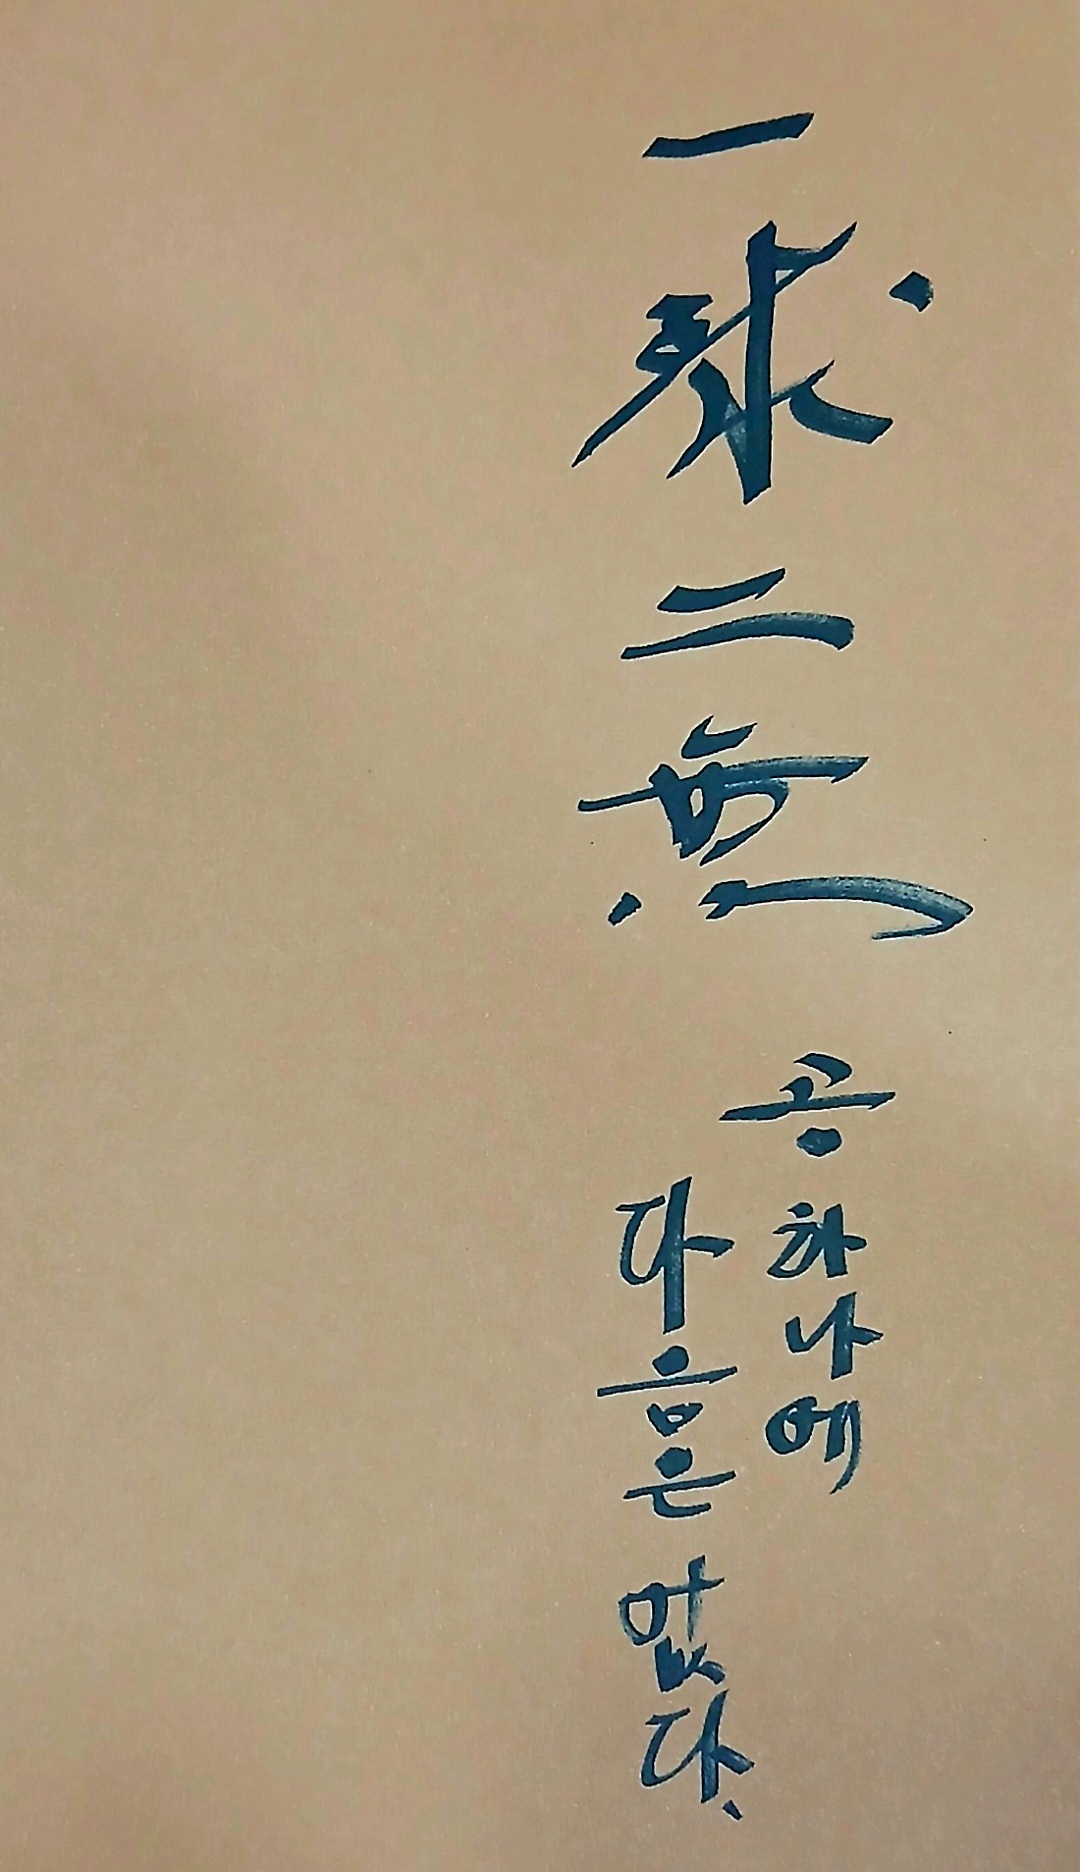 一球二無
공하나에
다음은 없다.